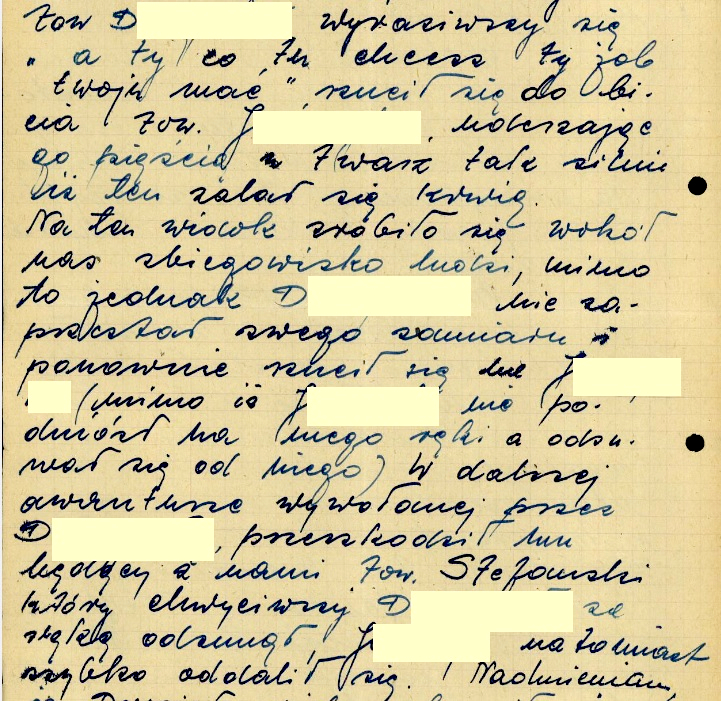 tow D wyraziwszy się
" a ty co tu chcesz ty job
twoju mać" rzucił się do bi-
cia tow. J , uderzając
go pięścią w twarz tak silnie
iż ten zalał się krwią.
Na ten widok zrobiło się wokół
nas zbiegowisko ludzi, mimo
to jednak D nie za-
przestał swego zamiaru i
ponownie rzucił się na J
(mimo iż J nie po-
dniósł na niego ręki a odsu-
wał się od niego) W dalszej
awanturze wywołanej przez
D , przeszkodził mu
będący z nami tow. Stefański
który chwyciwszy D za
rękę odsunął, J natomiast
szybko oddalił się. Nadmieniam,